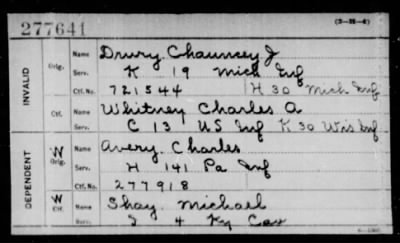 277641 (3-28-6)
INVALID
Orig. Name Drury Chauncey J
Serv. K 19 Mich Inf
Ctf. No. 721544 H 30 Mich Inf
Ctf. Name Whitney Charles A
Serv. C 13 US Inf K 30 Wis Inf
DEPENDENT
W Orig. Name Avery Charles
Serv. H 141 Pa Inf
Ctf. No. 277918
W Ctf. Name Shay Michael
Serv. I 4 Ky Cav